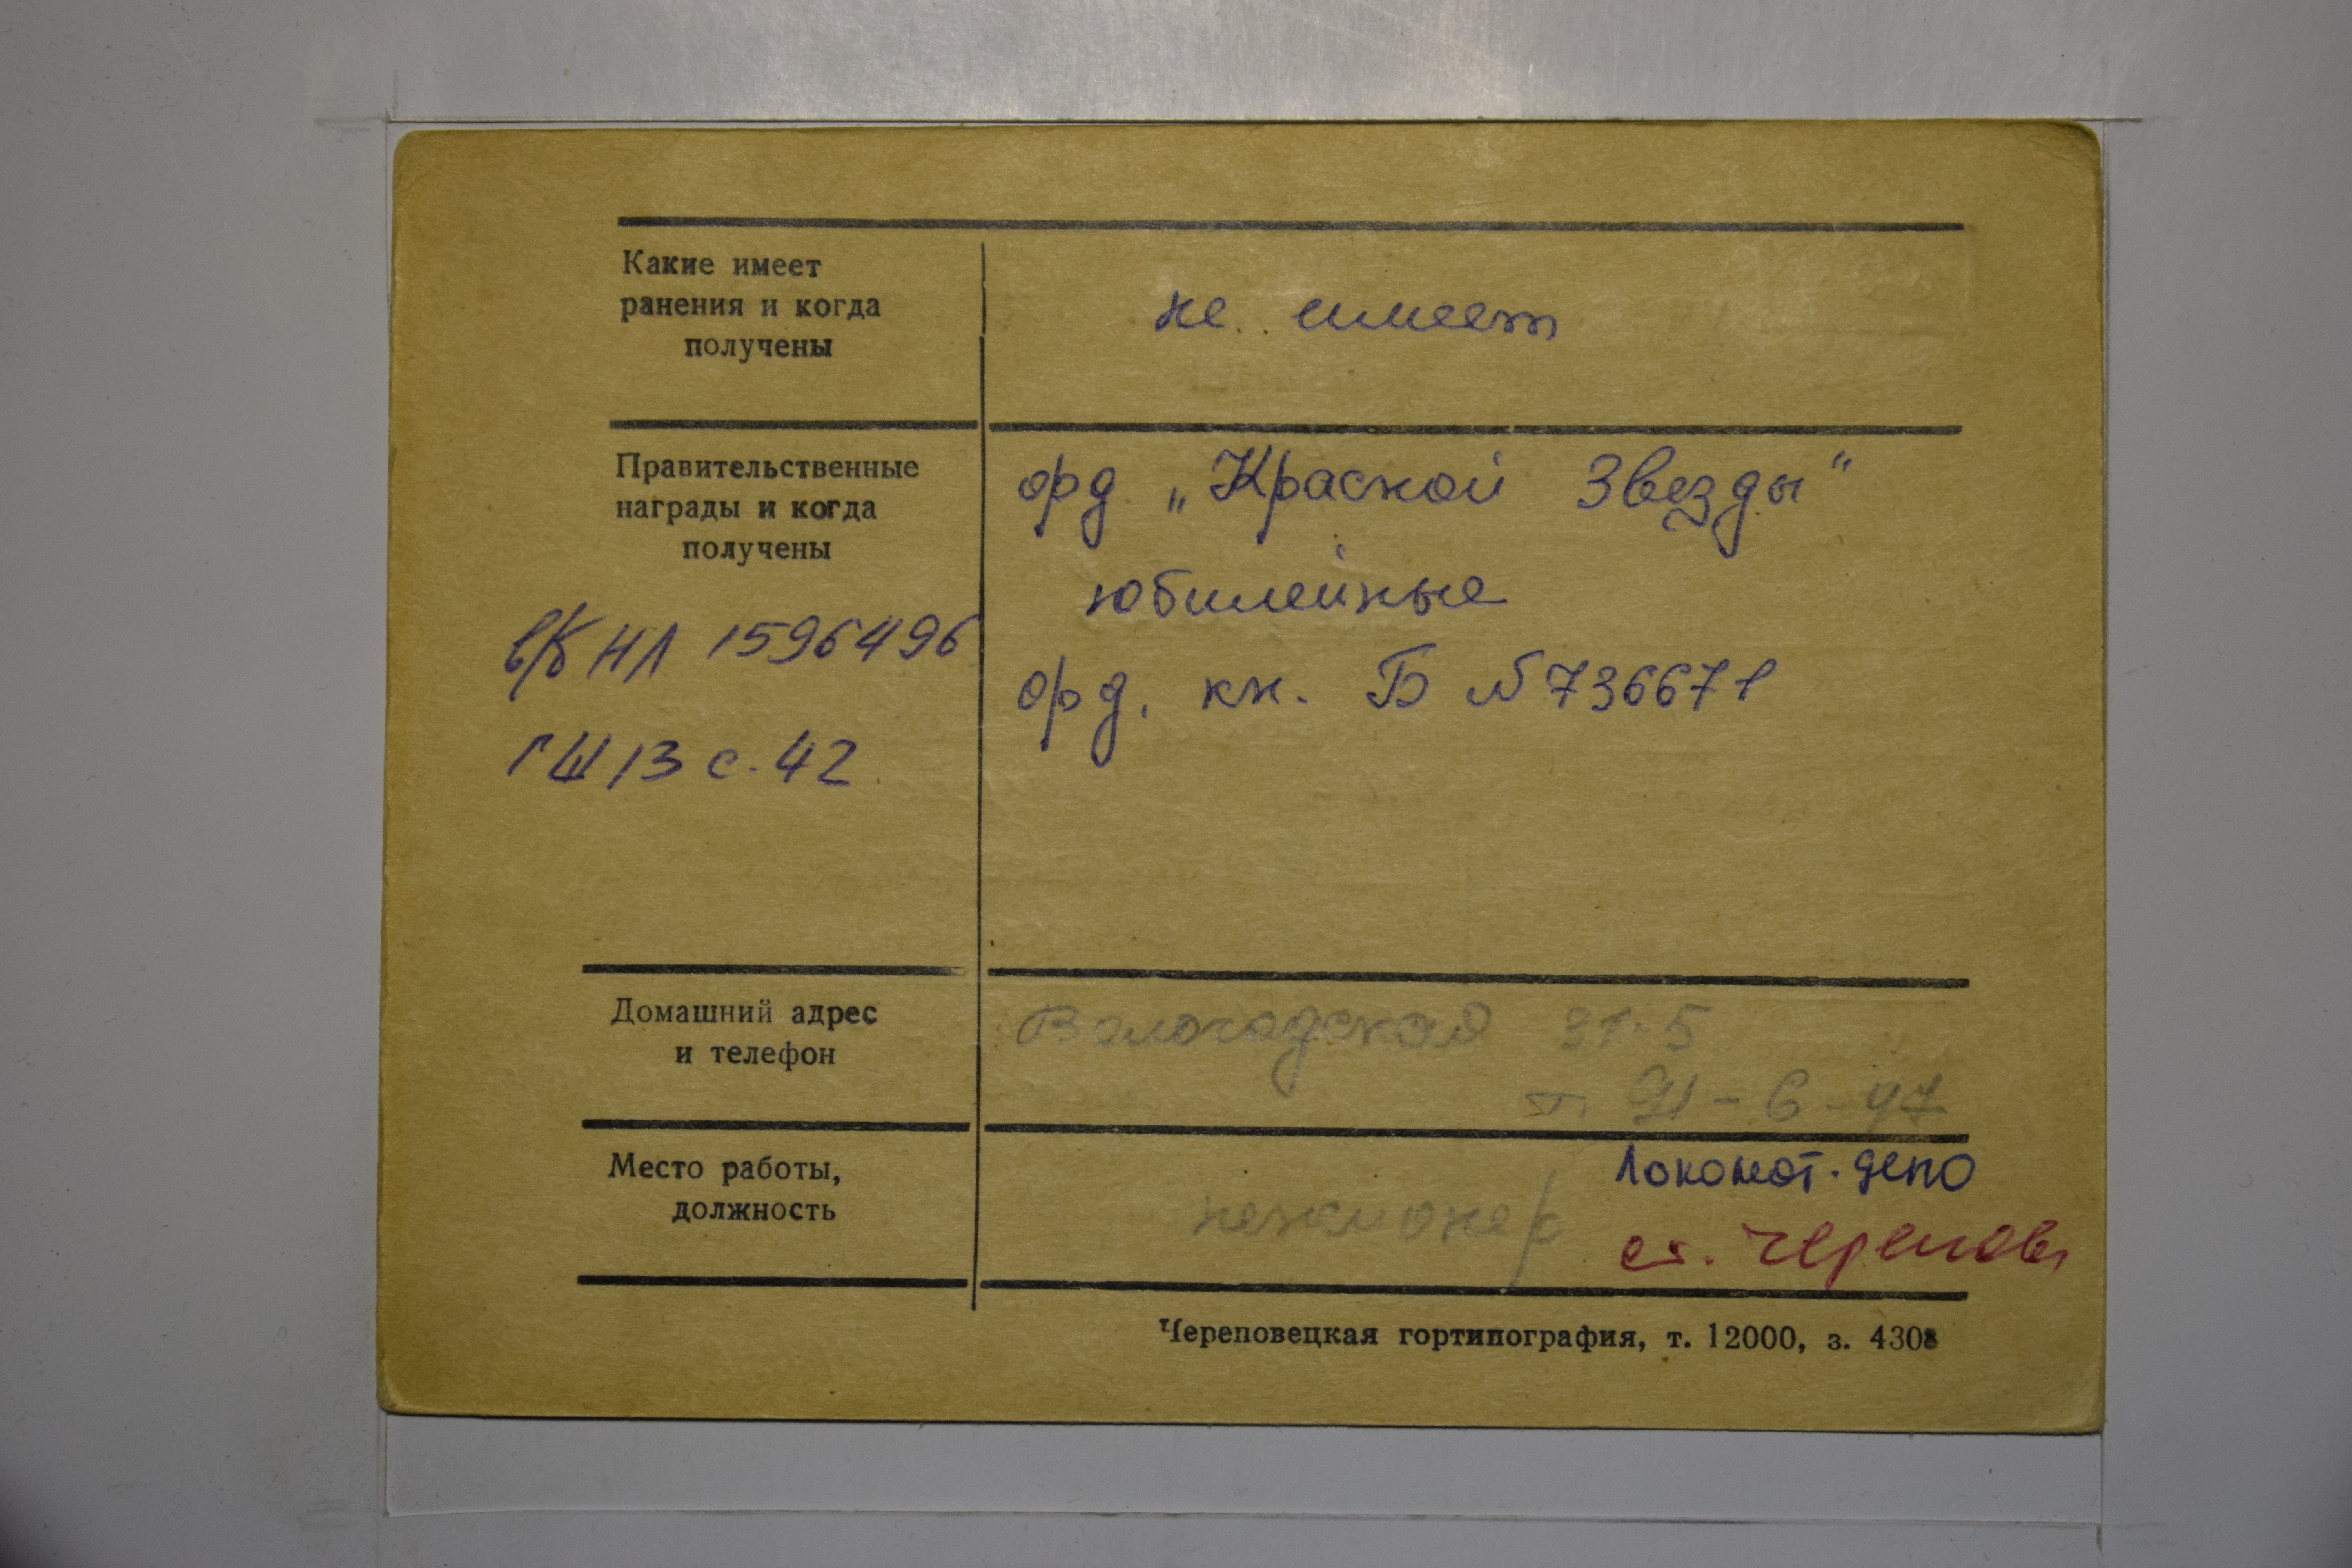 Какие имеет
ранения и когда
получены
не имеет
Правительственные
награды и когда
получены
орд „Красной Звезды"
юбилейные
орд. кн. Б №736671
в/к НЛ 1596496
ГШ 13 с. 42
Домашний адрес
и телефон
Вологодская 31-5
т. 91-6-47
Место работы,
должность
пенсионер
Локомот. депо
ст. Черепов
Череповецкая гортипография, т. 12000, з. 4308